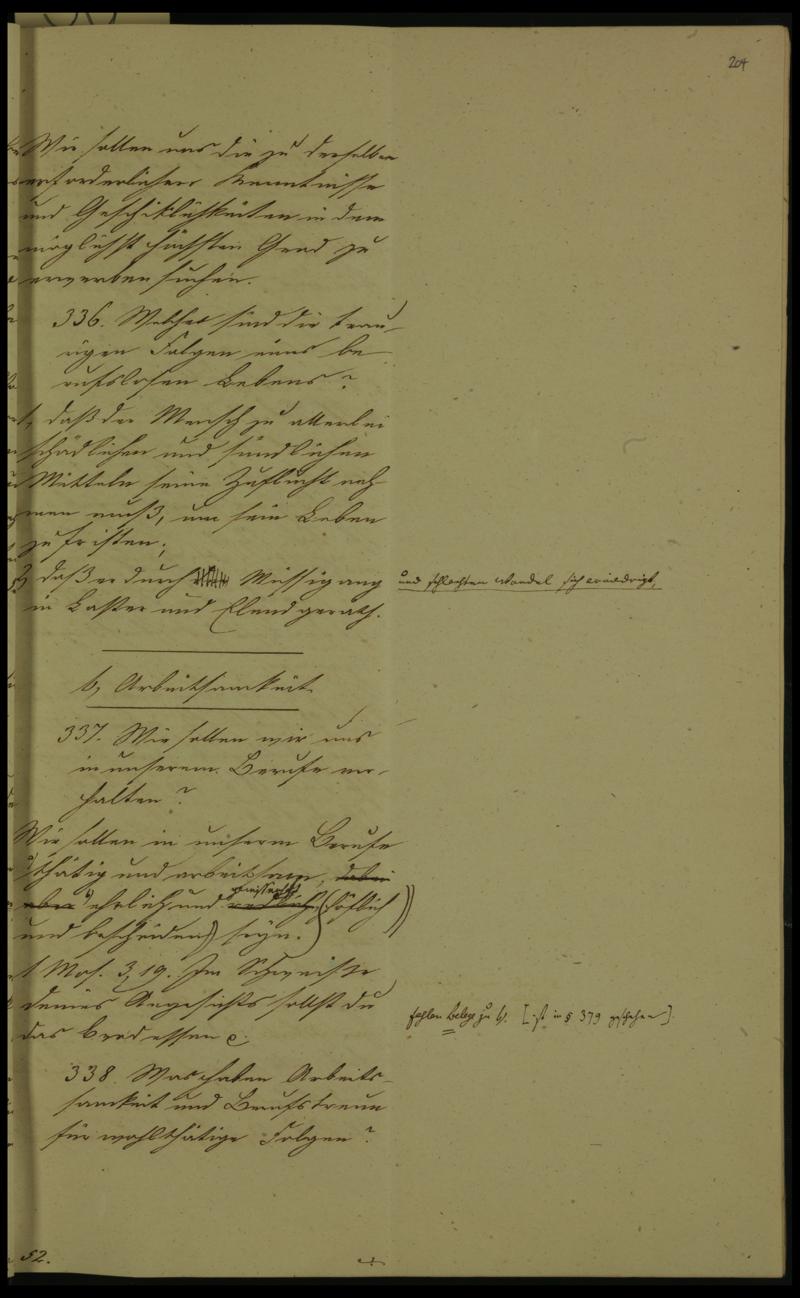 204
Wir sollen uns die zu derselben
erforderlichen Kenntnisse
und Geschiklichkeiten in dem
möglichst höchsten Grad zu
erwerben suchen.
336. Welches sind die trau-
rigen Folgen eines be-
rufslosen Lebens?
1, daß der Mensch zu allerlei
schädlichen und sündlichen
Mitteln seine Zuflucht neh-
men muß, um sein Leben
zu fristen;
2, daß er durch Müssigang und schlechten Wandel sich erniedrigt,
in Laster und Elend geräth.
b, Arbeitsamkeit.
337. Wie sollen wir uns
in unserem Berufe ver-
halten?
Wir sollen in unserm Berufe
a) thätig und arbeitsam, dabei
aber b) ehrlich und (höflich
und bescheiden) seyn.
1 Mos. 3, 19. Im Schweiße
deines Angesichts sollst du
das Brod essen c.
fehlen Belege zu b). [ist in § 379 geschehen].
338. Was haben Arbeits-
samkeit und Berufstreue
für wohlthätige Folgen?
52.